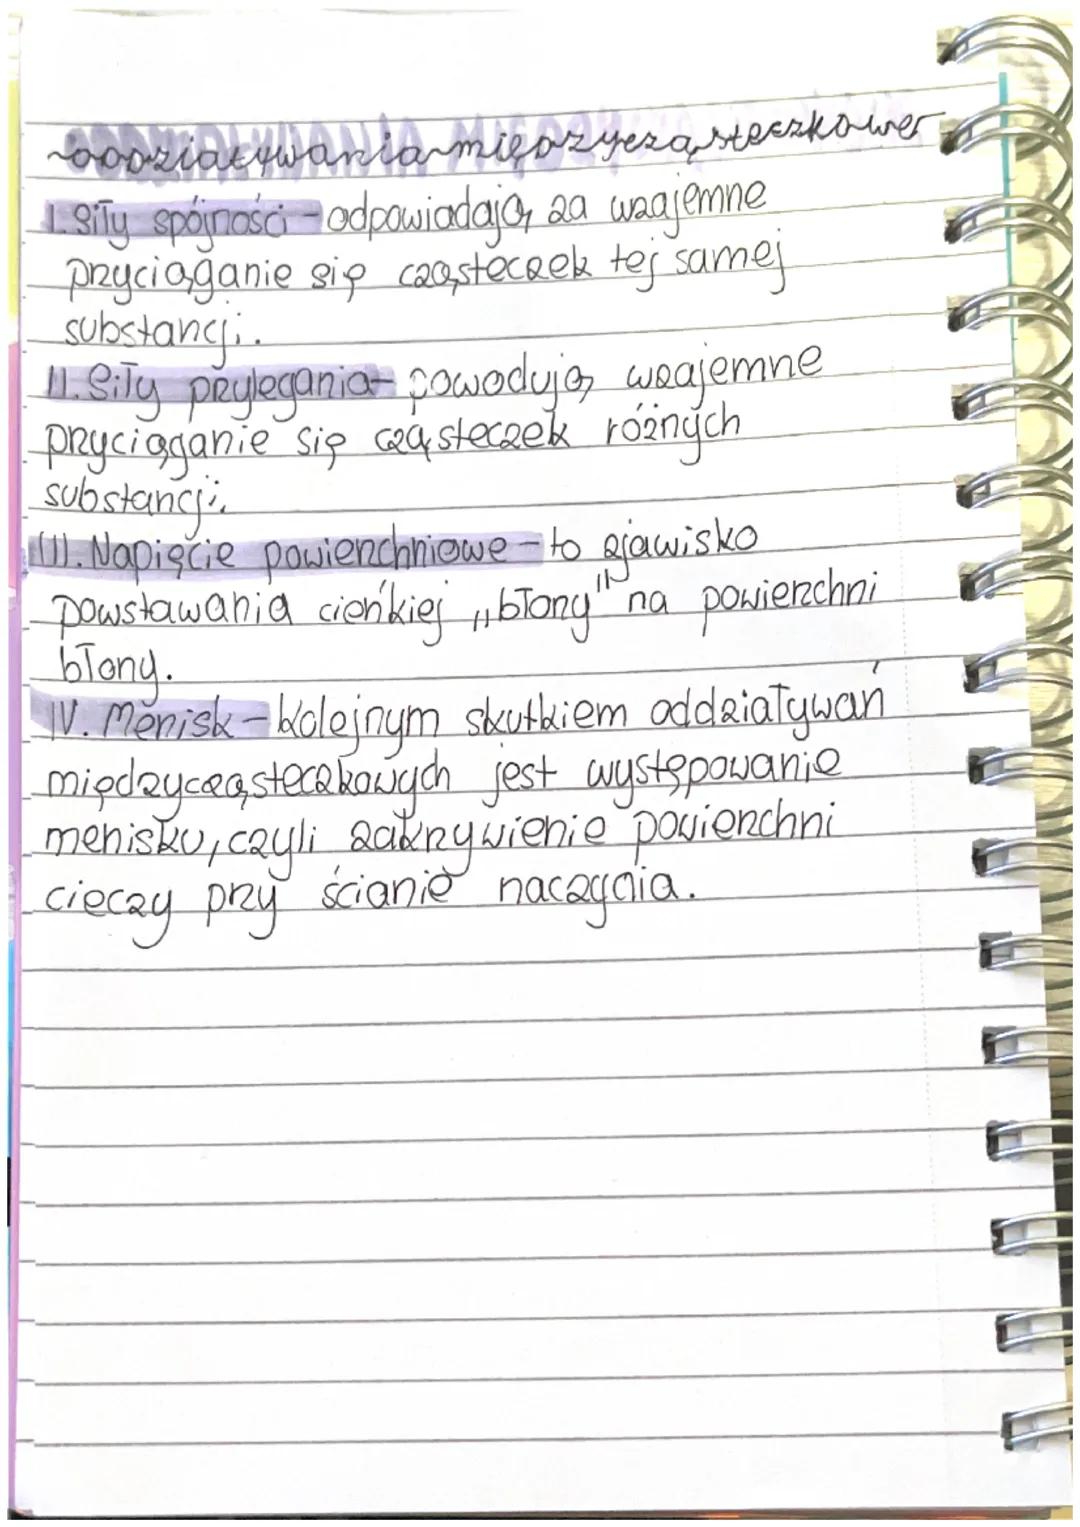 ~oddziaływania międzycząsteczkowe~
I. Siły spójności - odpowiadają za wzajemne
przyciąganie się cząsteczek tej samej
substancji.
II. Siły przylegania - powodują wzajemne
przyciąganie się cząsteczek różnych
substancji.
III. Napięcie powierzchniowe - to zjawisko
powstawania cieńkiej ,,błony" na powierzchni
błony.
IV. Menisk - kolejnym skutkiem oddziaływań
międzycząsteczkowych jest występowanie
menisku, czyli zakrzywienie powierzchni
cieczy przy ścianie naczynia.